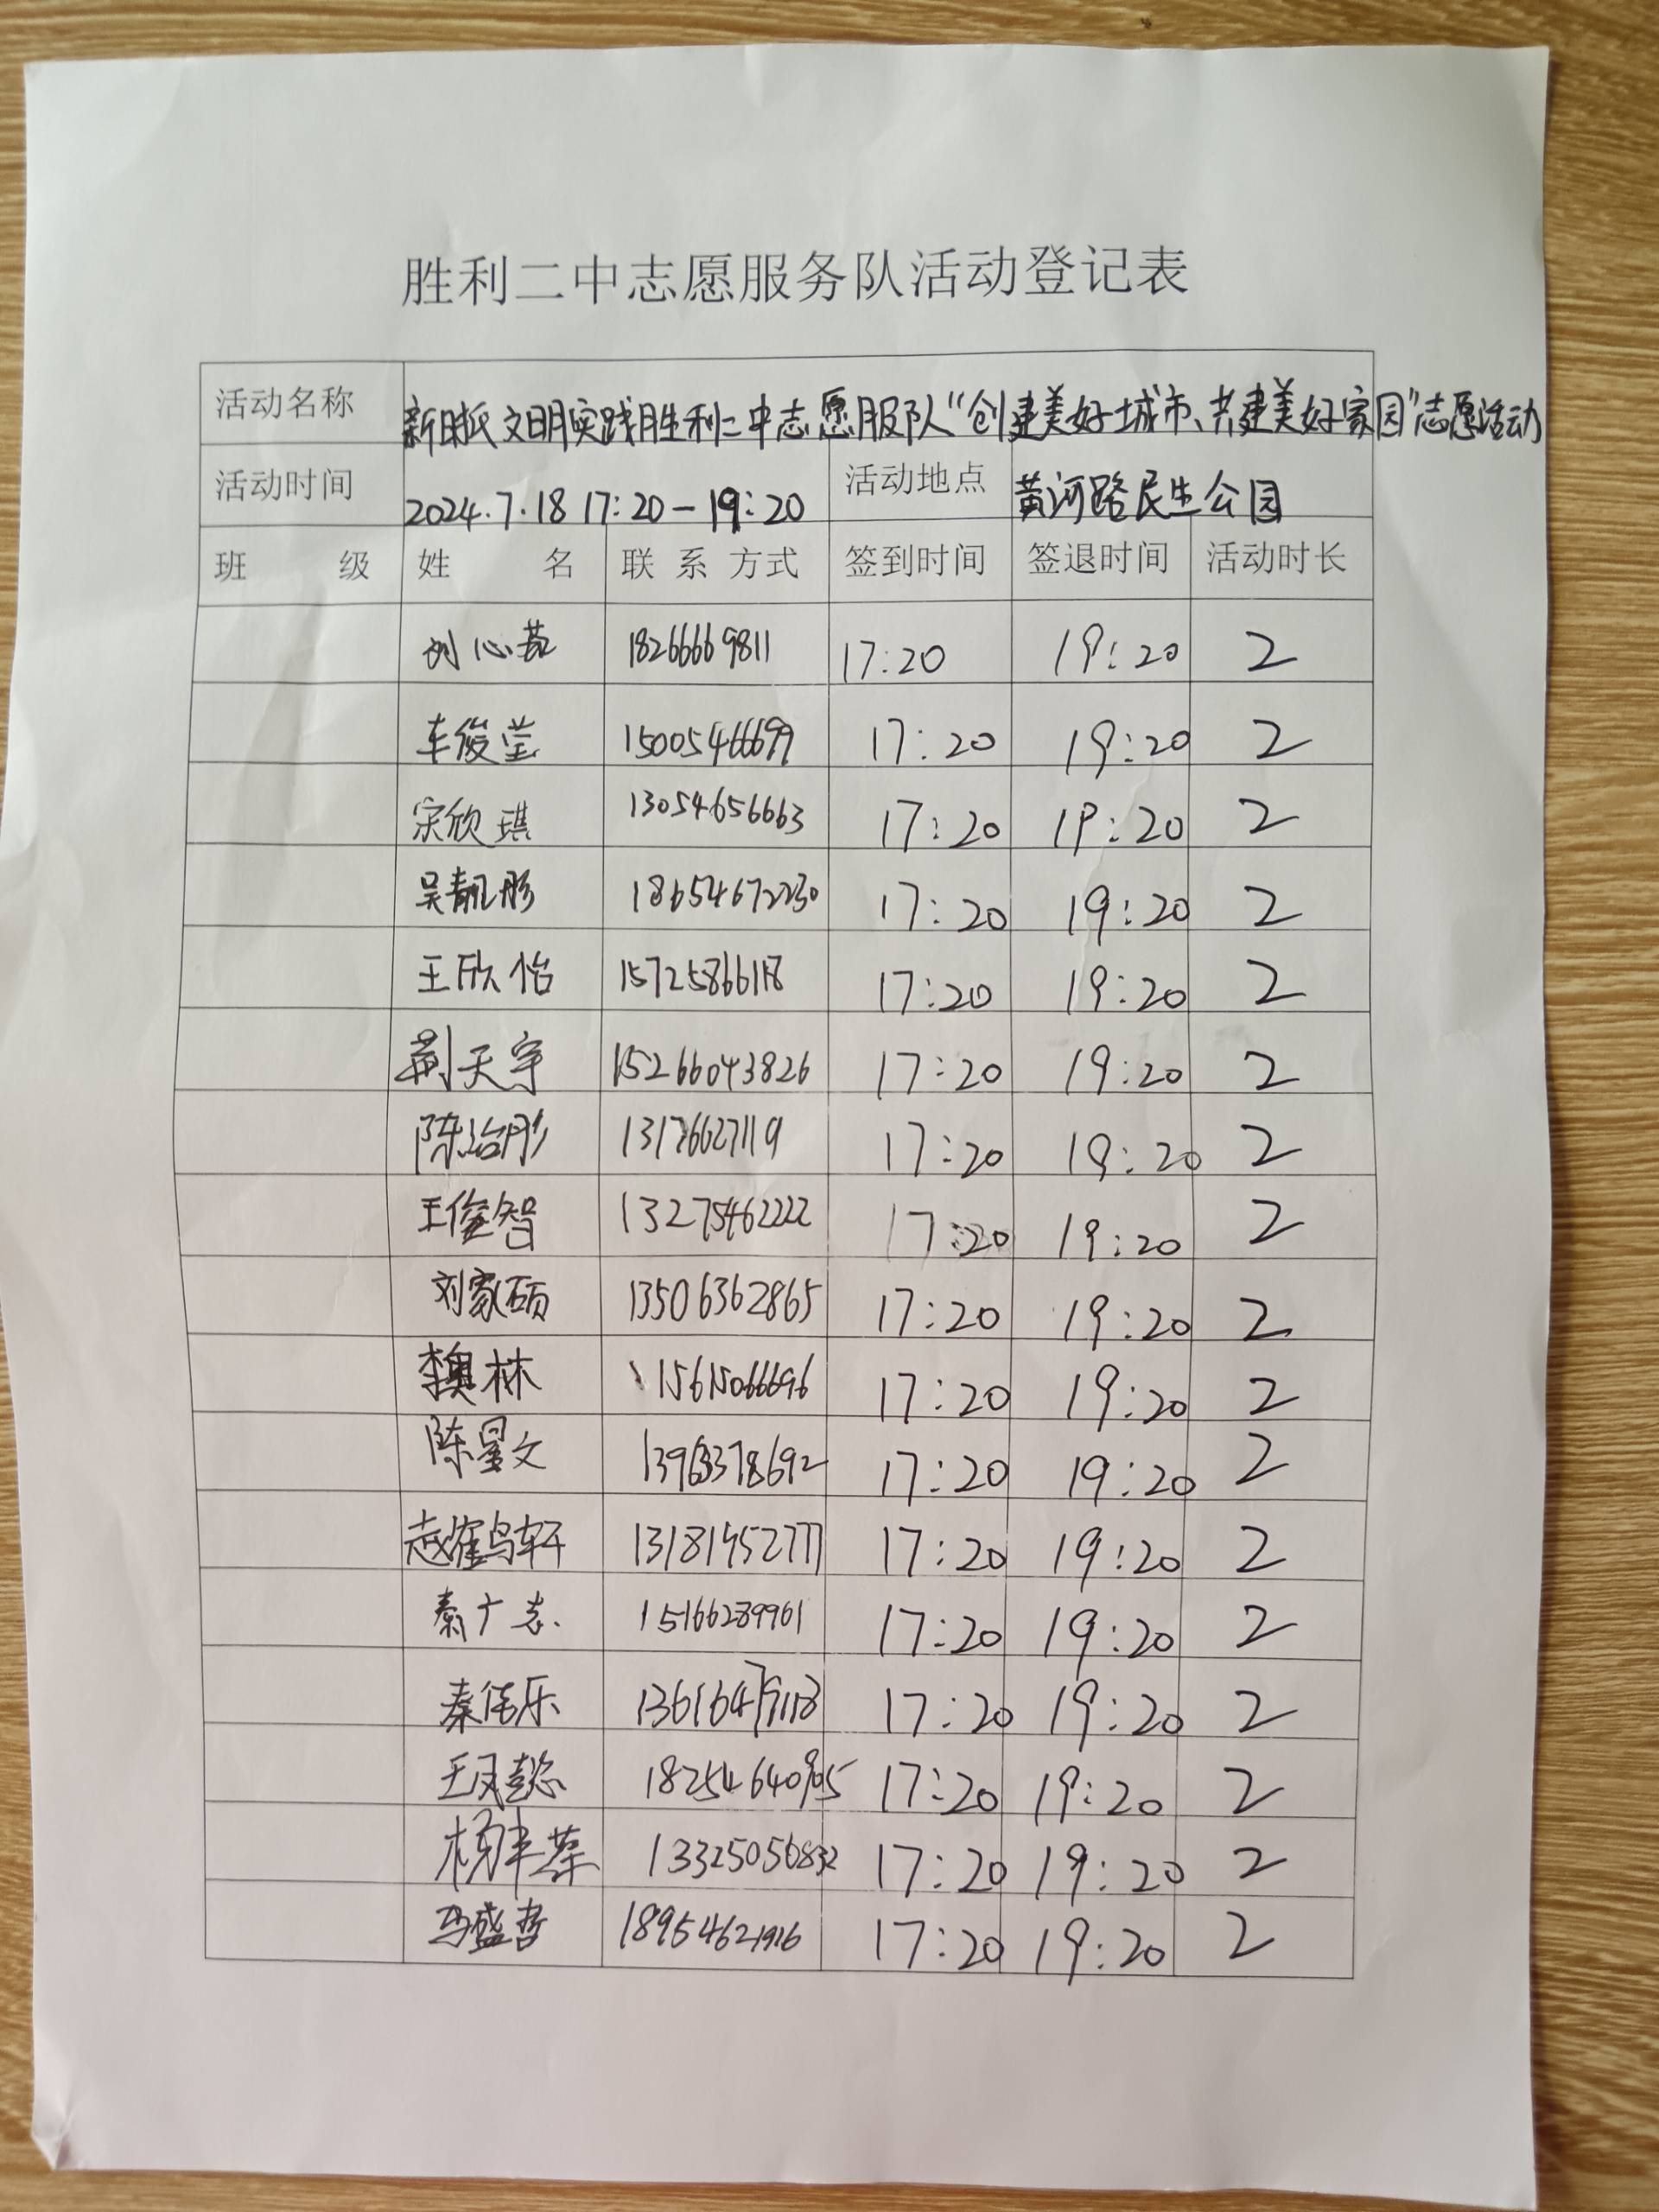 胜利二中志愿服务队活动登记表
活动名称 新时代文明实践胜利二中志愿服队“创建美好城市、共建美好家园”志愿活动
活动时间 2024.7.18 17:20-19:20 活动地点 黄河路民生公园
班 级 姓 名 联系方式 签到时间 签退时间 活动时长
刘心茹 18266669811 17:20 19:20 2
车俊莹 15005466699 17:20 19:20 2
宋欣琪 13054656663 17:20 19:20 2
吴靓彤 18654672230 17:20 19:20 2
王欣怡 15725866118 17:20 19:20 2
荆天宇 15266043826 17:20 19:20 2
陈治彤 13176627119 17:20 19:20 2
王俊智 13275462222 17:20 19:20 2
刘家硕 13506362865 17:20 19:20 2
李奥林 15615066696 17:20 19:20 2
陈星文 13963378692 17:20 19:20 2
赵崔鸟轩 13181952777 17:20 19:20 2
秦广志 15166289961 17:20 19:20 2
秦伟乐 17:20 19:20 2
王凤懿 18254640905 17:20 19:20 2
13325056832 17:20 19:20 2
马盛哲 18954621916 17:20 19:20 2